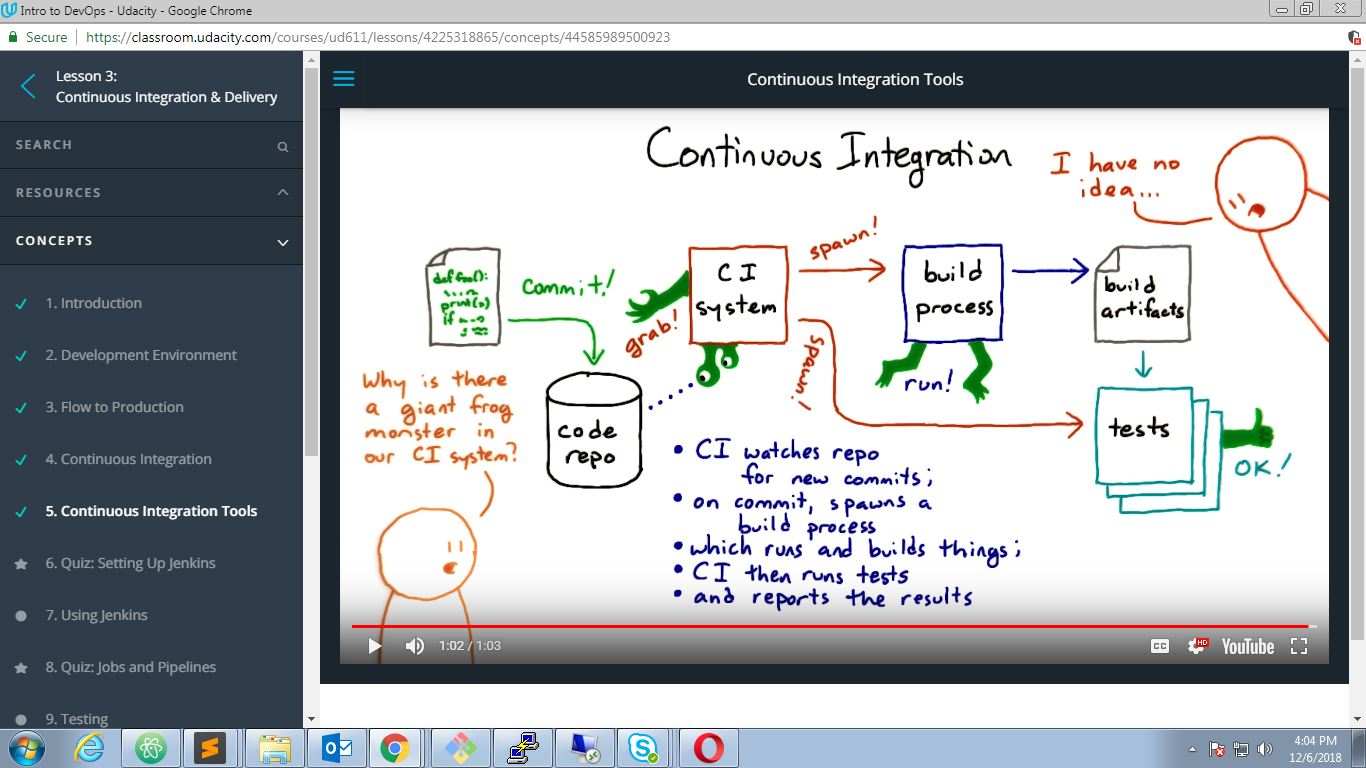 Intro to DevOps - Udacity - Google Chrome
Secure
https://classroom.udacity.com/courses/ud611/lessons/4225318865/concepts/44585989500923
Lesson 3:
Continuous Integration & Delivery
SEARCH
RESOURCES
CONCEPTS
1. Introduction
2. Development Environment
3. Flow to Production
4. Continuous Integration
5. Continuous Integration Tools
6. Quiz: Setting Up Jenkins
7. Using Jenkins
8. Quiz: Jobs and Pipelines
9. Testing
Continuous Integration Tools
Continuous Integration
I have no
idea...
def foo():
print(
if
commit!
grab!
CI
system
spawn!
spawn!
build
process
run!
build
artifacts
tests
OK!
code
repo
Why is there
a giant frog
monster in
our CI system?
• CI watches repo
for new commits;
• on commit, spawns a
build process
• which runs and builds things;
• CI then runs tests
• and reports the results
1:02 / 1:03
CC
HD
YouTube
4:04 PM
12/6/2018